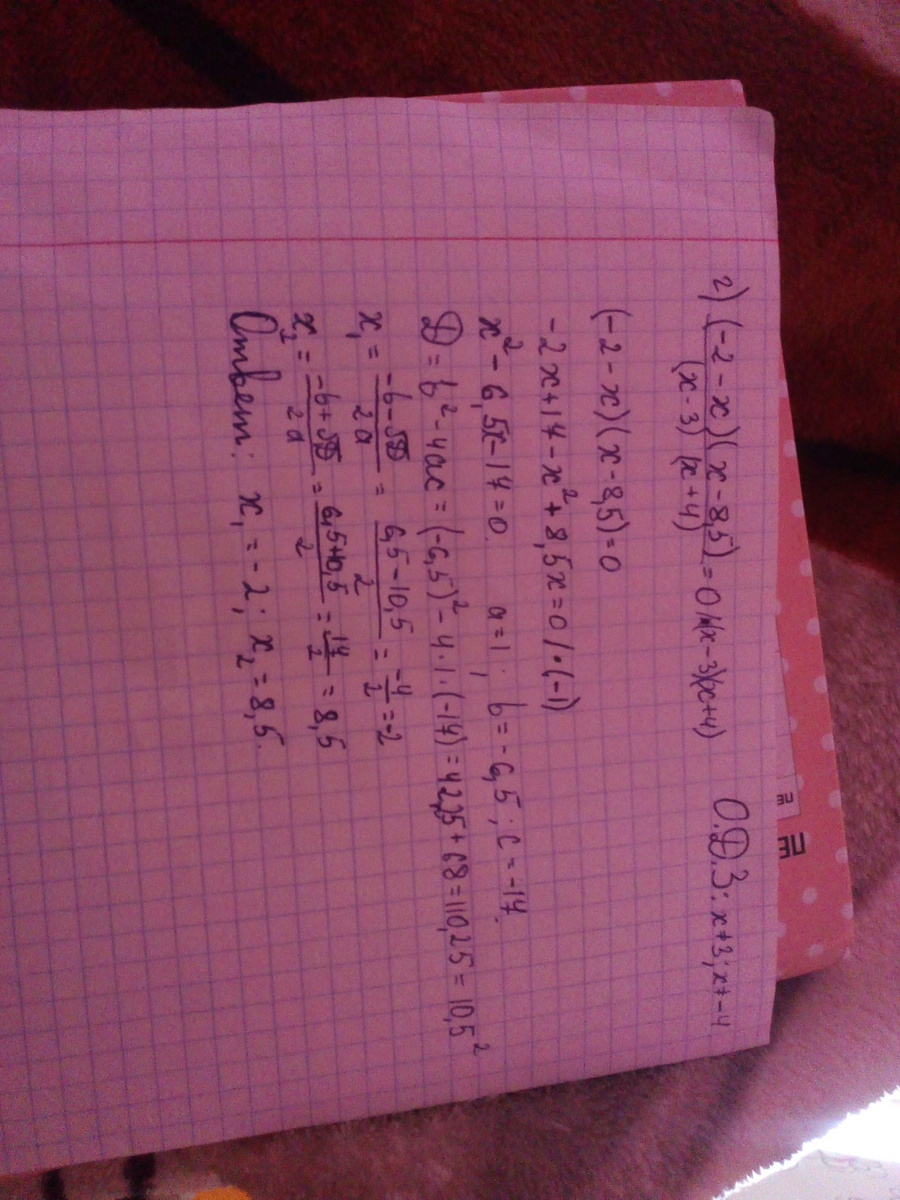 2) (-2-x)(x-8,5)/(x-3)(x+4) = 0 /·(x-3)(x+4) О.Д.З: x≠3; x≠-4
(-2-x)(x-8,5)=0
-2x+17-x²+8,5x=0 /·(-1)
x²-6,5x-17=0. a=1; b=-6,5; c=-17.
D=b²-4ac=(-6,5)²-4·1·(-17)=42,25+68=110,25=10,5²
x₁=(-b-√D)/2a=(6,5-10,5)/2=-4/2=-2
x₂=(-b+√D)/2a=(6,5+10,5)/2=17/2=8,5
Ответ: x₁=-2; x₂=8,5.
ПЕ
ПЕ